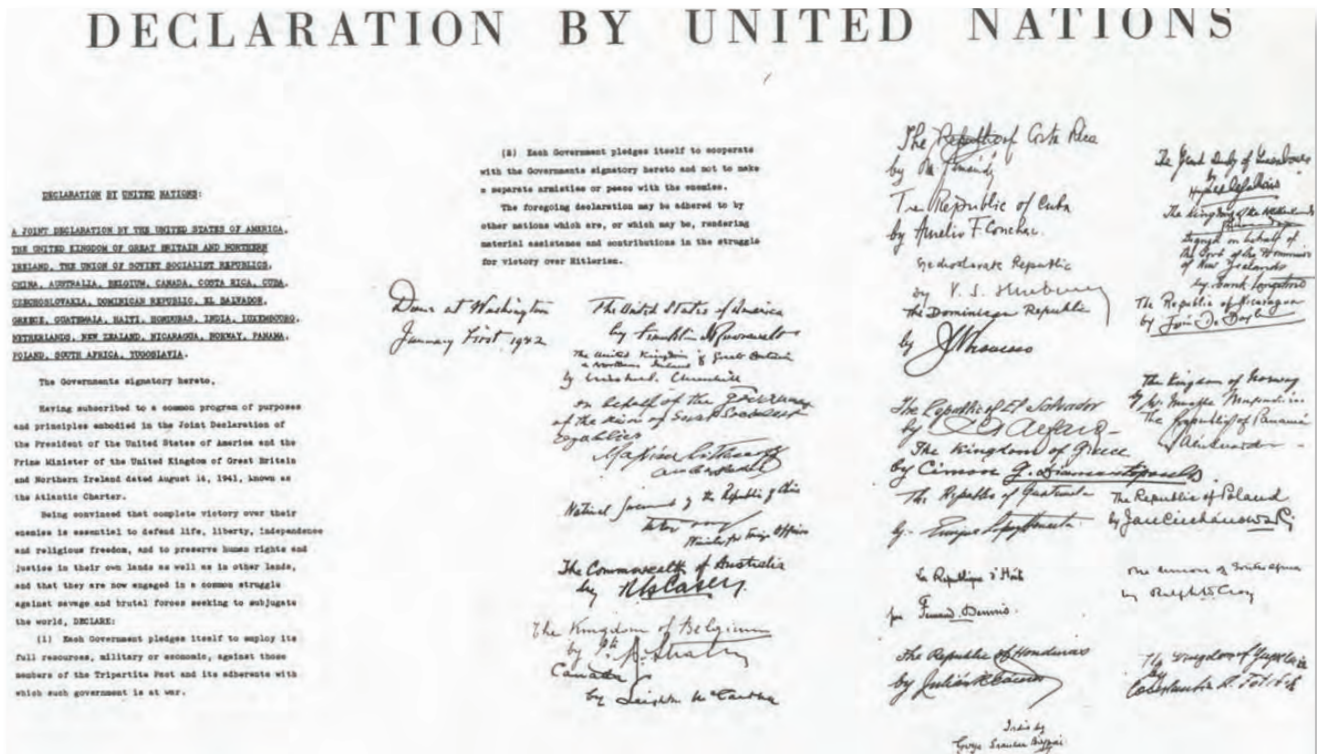 DECLARATION BY UNITED NATIONS
DECLARATION BY UNITED NATIONS:
A JOINT DECLARATION BY THE UNITED STATES OF AMERICA,
THE UNITED KINGDOM OF GREAT BRITAIN AND NORTHERN
IRELAND, THE UNION OF SOVIET SOCIALIST REPUBLICS,
CHINA, AUSTRALIA, BELGIUM, CANADA, COSTA RICA, CUBA,
CZECHOSLOVAKIA, DOMINICAN REPUBLIC, EL SALVADOR,
GREECE, GUATEMALA, HAITI, HONDURAS, INDIA, LUXEMBOURG,
NETHERLANDS, NEW ZEALAND, NICARAGUA, NORWAY, PANAMA,
POLAND, SOUTH AFRICA, YUGOSLAVIA.
The Governments signatory hereto,
Having subscribed to a common program of purposes
and principles embodied in the Joint Declaration of
the President of the United States of America and the
Prime Minister of the United Kingdom of Great Britain
and Northern Ireland dated August 14, 1941, known as
the Atlantic Charter.
Being convinced that complete victory over their
enemies is essential to defend life, liberty, independence
and religious freedom, and to preserve human rights and
justice in their own lands as well as in other lands,
and that they are now engaged in a common struggle
against savage and brutal forces seeking to subjugate
the world, DECLARE:
(1) Each Government pledges itself to employ its
full resources, military or economic, against those
members of the Tripartite Pact and its adherents with
which such government is at war.
(2) Each Government pledges itself to cooperate
with the Governments signatory hereto and not to make
a separate armistice or peace with the enemies.
The foregoing declaration may be adhered to by
other nations which are, or which may be, rendering
material assistance and contributions in the struggle
for victory over Hitlerism.
Done at Washington
January First, 1942
The United States of America
by Franklin D Roosevelt
The United Kingdom of Great Britain
& Northern Ireland
by Winston Churchill
on behalf of the Government
of the Union of Soviet Socialist
Republics
Maxim Litvinoff
Ambassador
National Government of the Republic of China
Minister for Foreign Affairs
The Commonwealth of Australia
by R G Casey
The Kingdom of Belgium
by
Canada
by Leighton McCarthy
The Republic of Costa Rica
by
The Republic of Cuba
by Aurelio F. Concheso
Republic
by V. S. Hurban
The Dominican Republic
by
The Republic of El Salvador
by C A Alfaro
The Kingdom of Greece
by Cimon G. Diamantopoulos
The Republic of Guatemala
by
La Republique d'Haiti
par Fernand Dennis
The Republic of Honduras
by Julián R Caceres
India by
Girja Shankar Bajpai
The Grand Duchy of Luxembourg
by
The Kingdom of the Netherlands
Signed on behalf of
the Govt of the Dominion
of New Zealand
by Frank Langstone
The Republic of Nicaragua
by
The Kingdom of Norway
by
The Republic of Panamá
by
The Republic of Poland
by Jan Ciechanowski
The Union of South Africa
by Ralph W. Close
The Kingdom of Yugoslavia
by
Constantin A. Fotitch